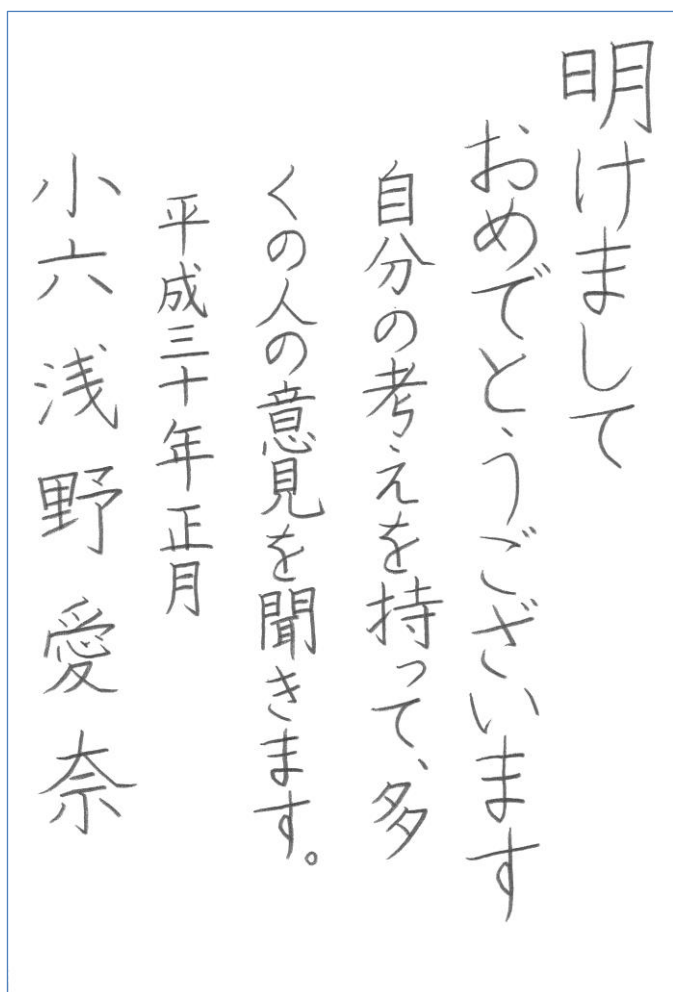 明けまして
おめでとうございます
自分の考えを持って、多
くの人の意見を聞きます。
平成三十年正月
小六 浅野愛奈